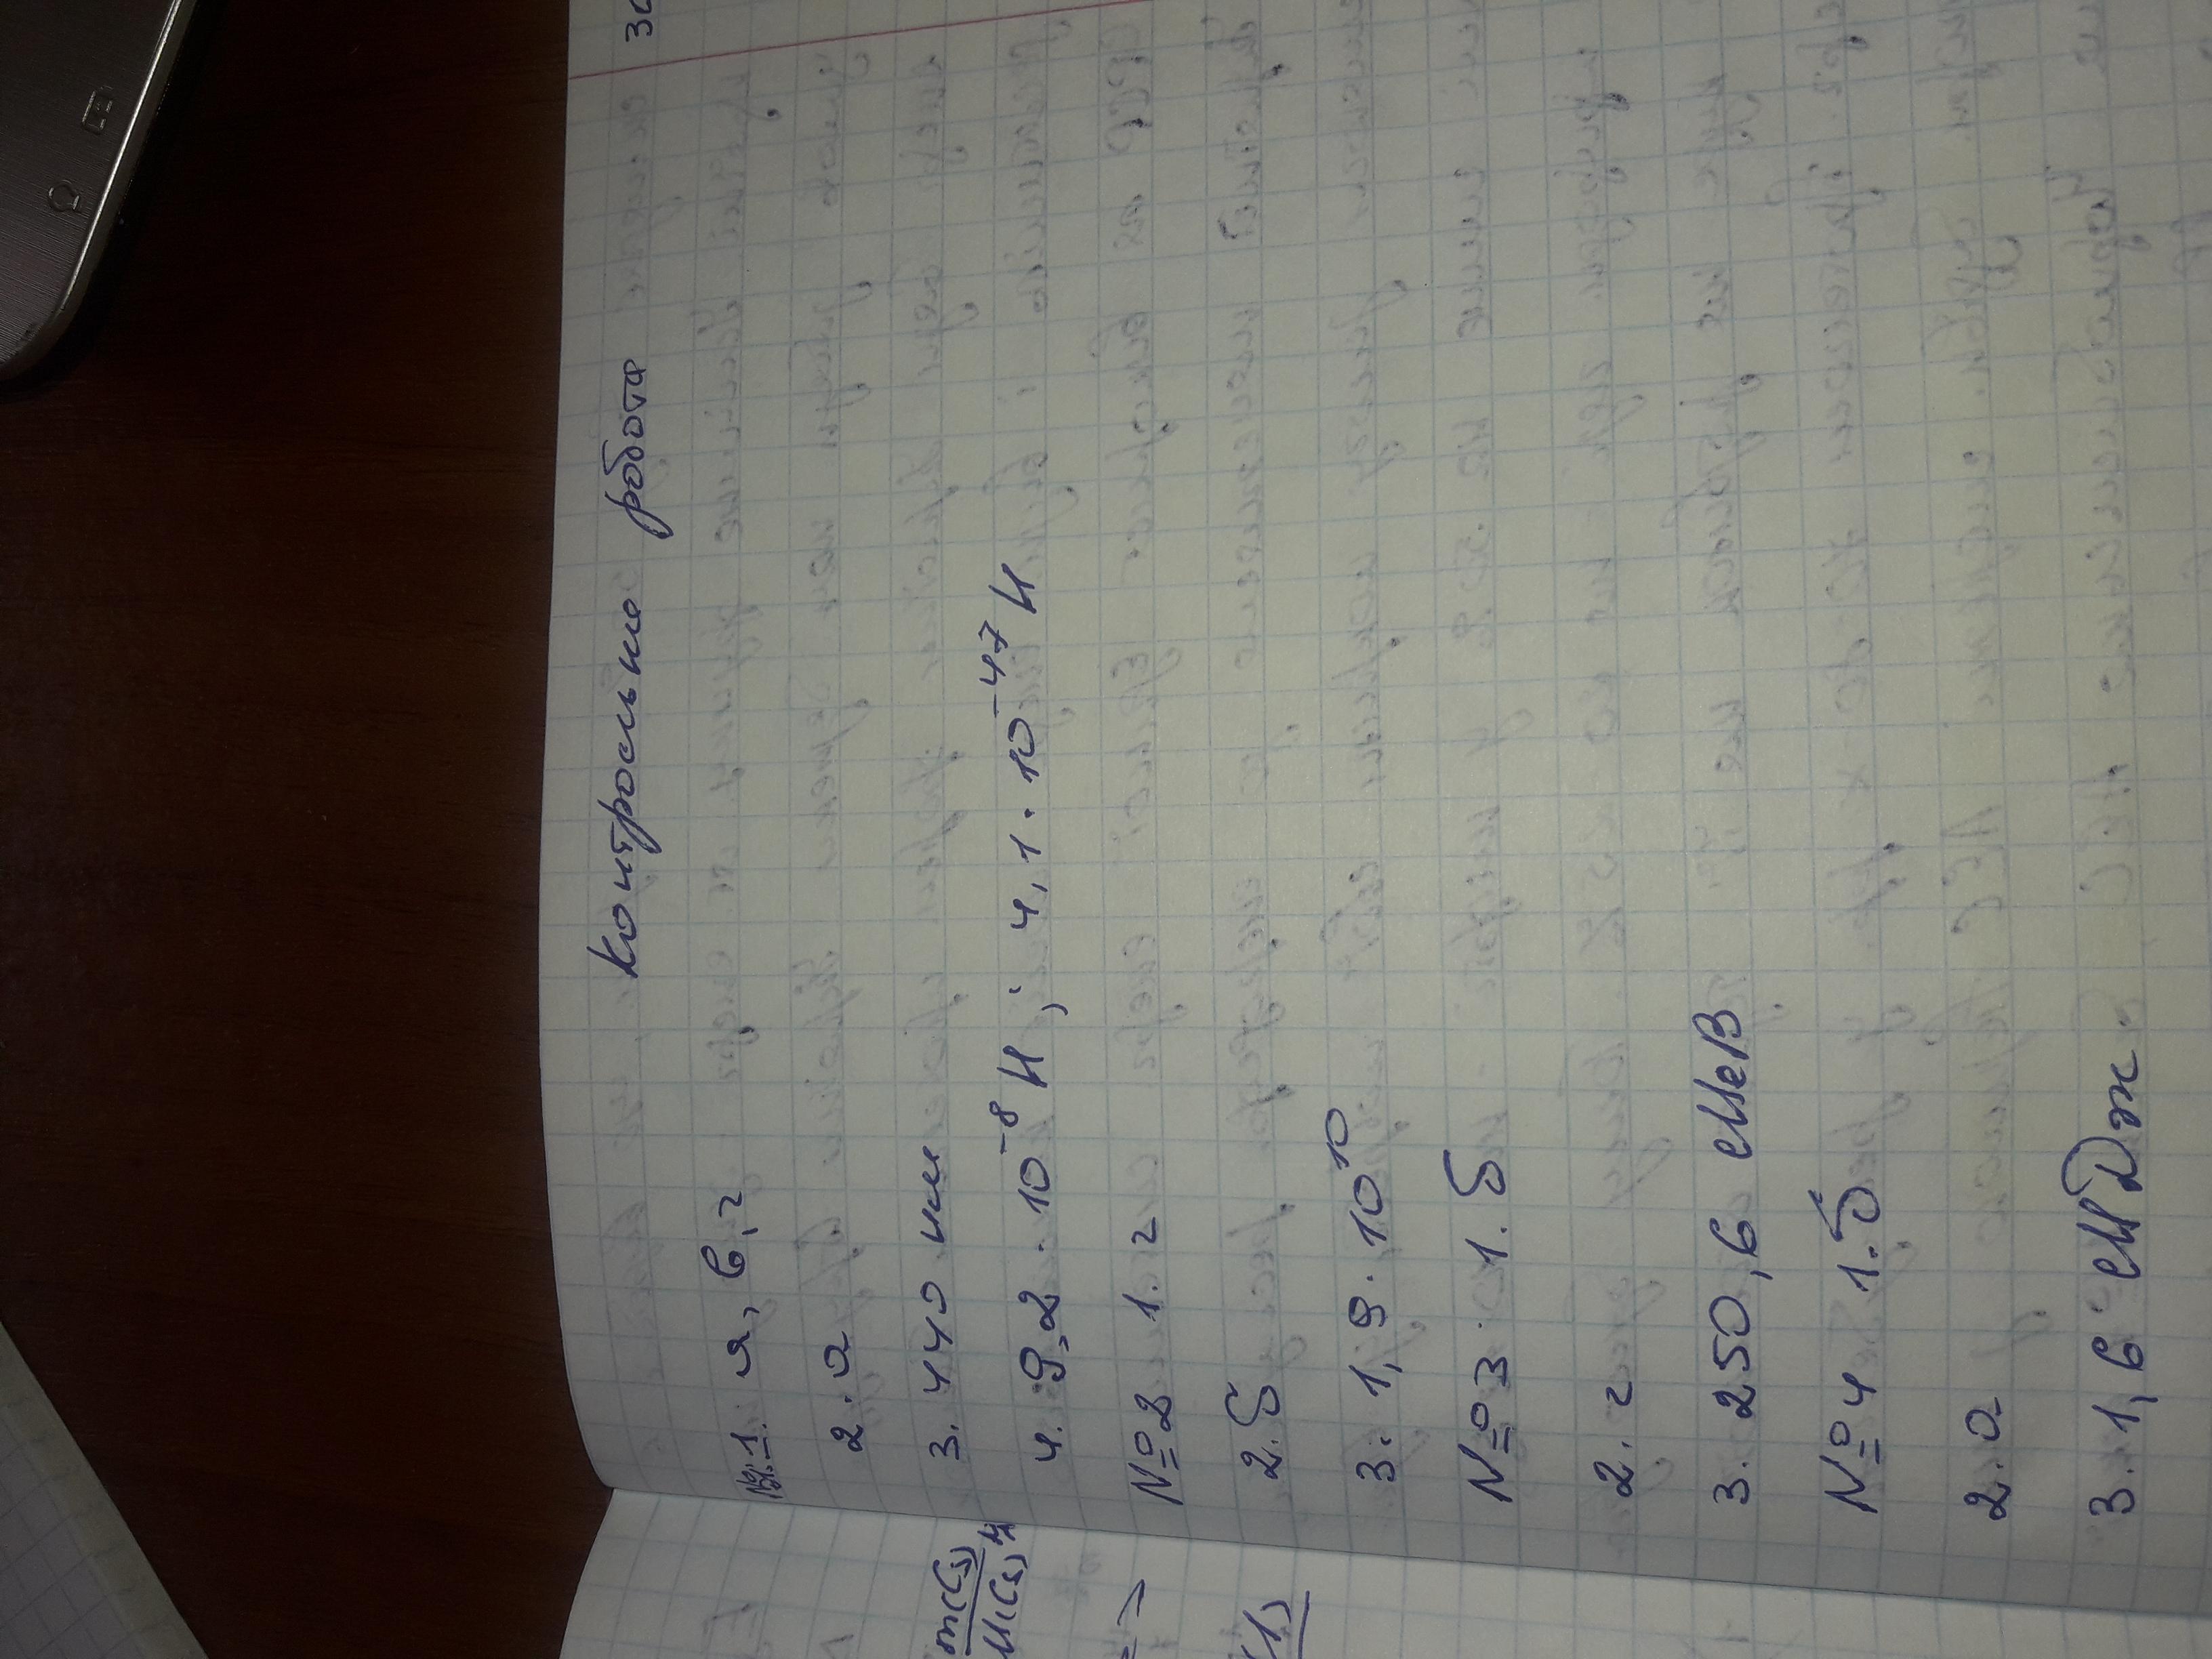 Контрольна робота
№1. а, в, г
2. а
3. 440 нм
4. 9,2 · 10⁻⁸ Н; 4,1 · 10⁻⁴⁷ Н
№2 1. г
2. б
3. 1,9 · 10¹⁰
№3 1. б
2. г
3. 250,6 МеВ
№4 1. б
2. а
3. 1,6 МДж
m(Cs)
M(Cs)
=>